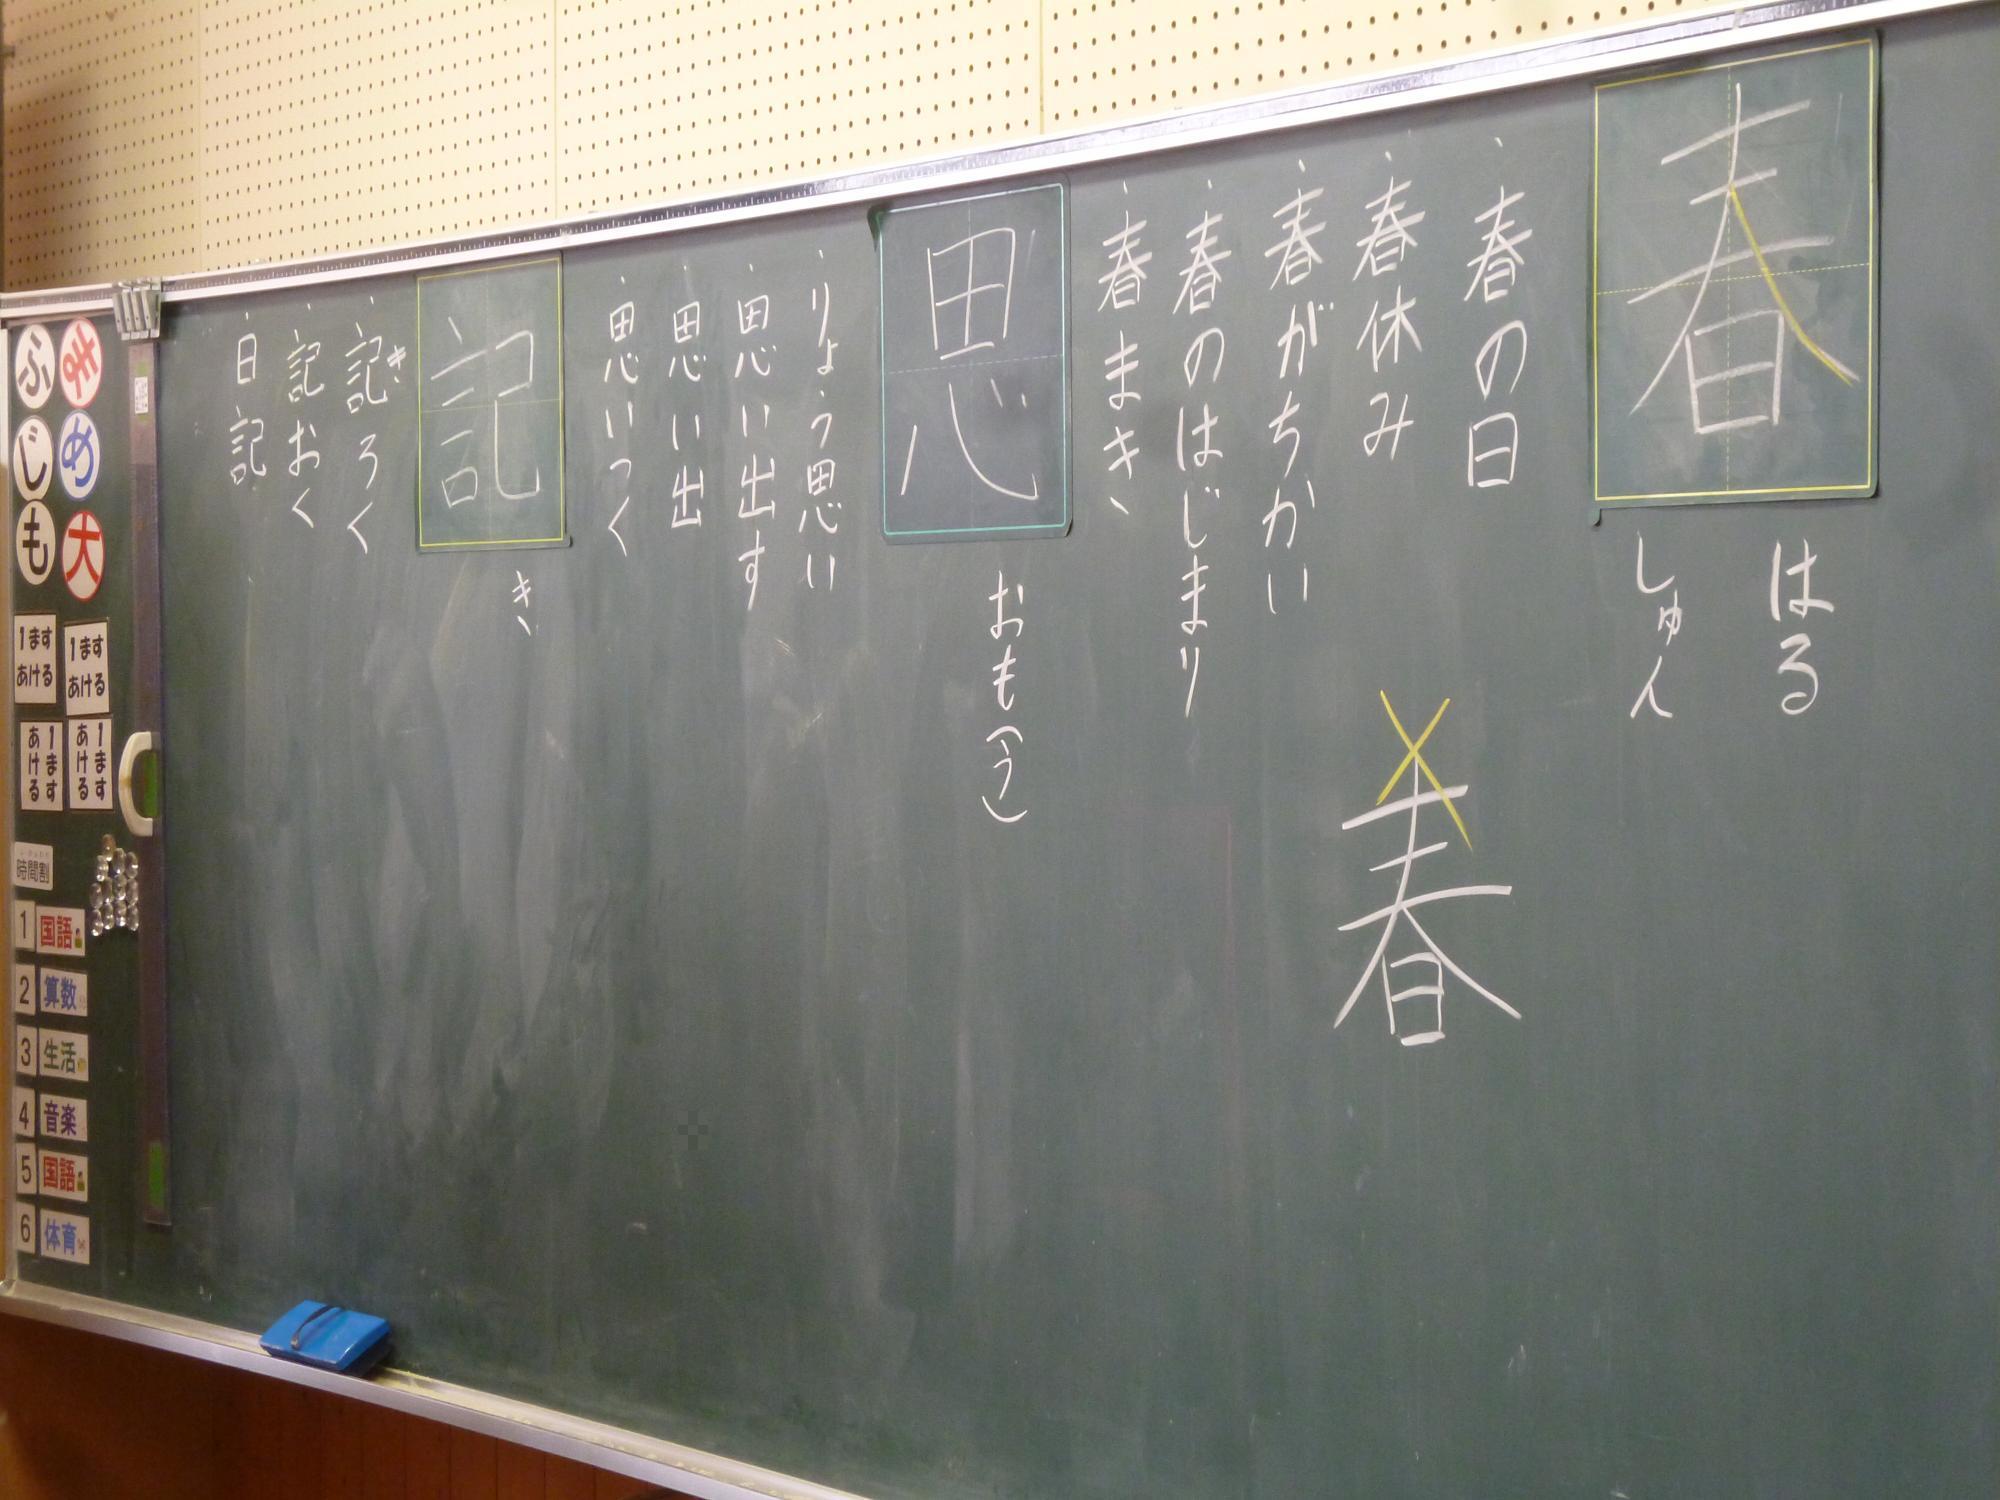 春
はる
しゅん
春の日
春休み
春がちかい
春のはじまり
春まき
春
思
おも(う)
りょう思い
思い出す
思い出
思いつく
記
き
記ろく
き
記おく
日記
まめ大
ふじも
1ます
あける
1ます
あける
1ます
あける
1ます
あける
時間割
1 国語
2 算数
3 生活
4 音楽
5 国語
6 体育